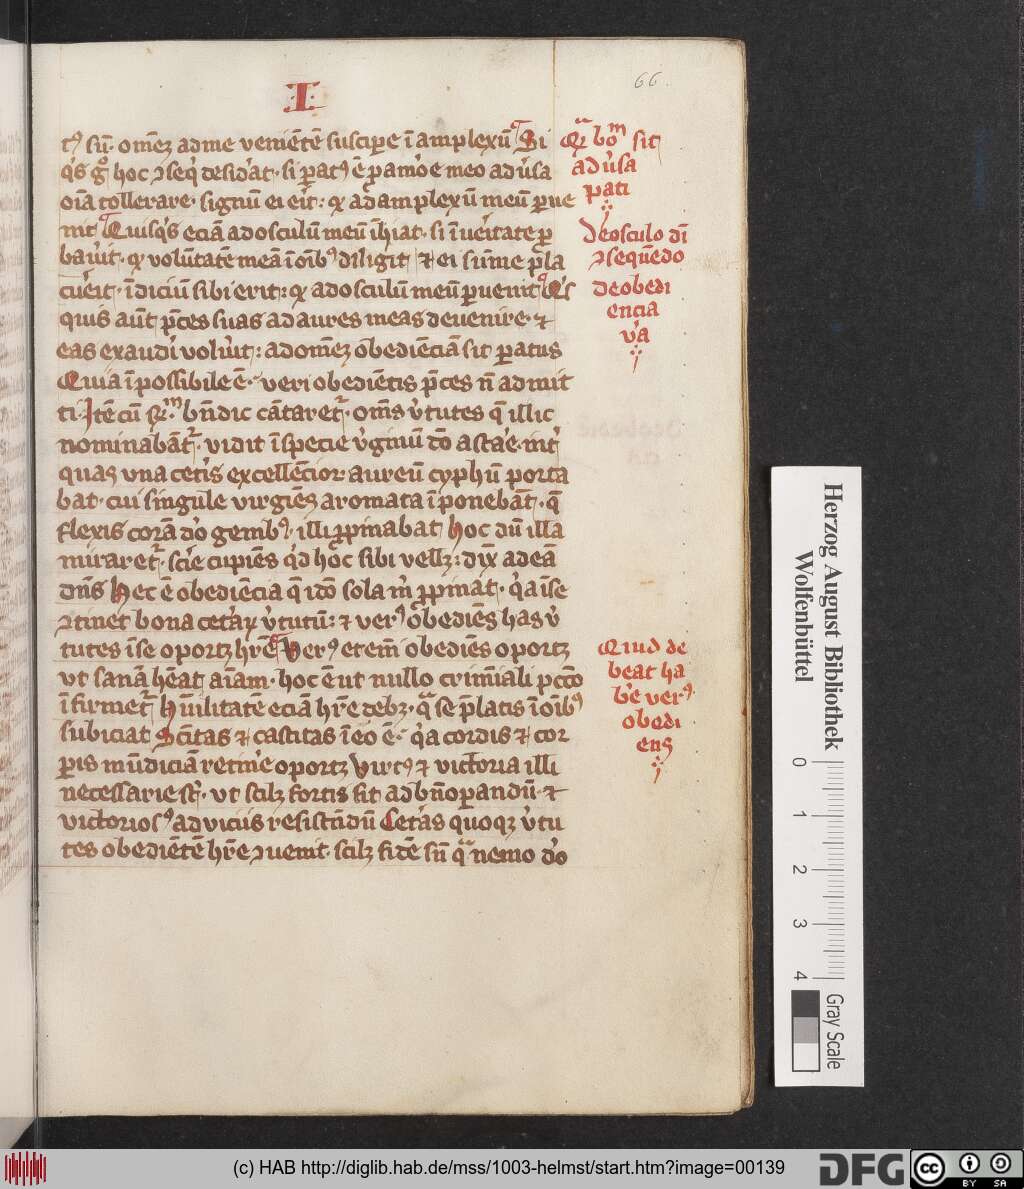 I
66
tꝰ sū· om̄ez ad me veniētē suscipe ī amplexū Si
q̇s gͦ hoc ↄseq̇ desiďat· si ꝑatꝰ ē ꝑ amoꝛe meo adūsa
oīa tollerare· signū ei erit: ꝙ ad amplexū meū ꝑue
nit Quisq̇s eciā ad osculū meū īhiat· si ī ueritate ꝑ
bauit· ꝙ volūtatē meā ī oīb̕ diligit ⁊ ei sūme ꝑ pla
cuerit· īdiciū sibi erit: ꝙ ad osculū meū ꝑuenit Qis
quis aūt p̄ces suas ad aures meas deuenire· ⁊
eas exaudi voluit: ad om̄ez obediēciā sit ꝑatus
Quia īpossibile ē· veri obediētis p̄ces nō admit
ti Itē cū bn̄dic cātaret· om̄s v̇tutes q̄ illic
nominabāt· vidit ī specie v̇ginū cō astare· int
quas vna cetis excellēcior aureū cyphū porta
bat· cui singule virgiēs aromata īponebāt· q̄
flexis corā dn̄o genibꝰ· illi ꝓpinabat hoc dū illa
miraret· scīe cupiēs qd hoc sibi vellz: dix̄ ad eā
dn̄s Hec ē obediēcia q̄ idō sola m̄ ꝓpinat· q̇a ī se
ↄtinet bona cetaꝝ v̇tutū: ⁊ verꝰ obediēs has v̇
tutes ī se oportz hr̄e Verꝰ etem̄ obediēs oportz
vt sanā hēat aīam· hoc ē ut nullo crim̄iali pctō
īfirmet Hūilitatē eciā hr̄e debz· q̄ se p̄latis ī oībꝰ
subiciat Sc̄itas ⁊ castitas ī eo ē· q̇a cordis ⁊ cor
ꝑis mūdiciā retinē oportz Virtꝰ ⁊ victoria illi
necessarie sūt· vt scilz fortis sit ad bn̄ oꝑandū· ⁊
victoriosꝰ ad viciis resistēdū Cetas quoqz v̇tu
tes obediētē hr̄e ↄuenit· scilz fidē sn̄ q̄ nemo do
Qͣ boͫ sit
ad ūsa
pati
De osculo dī
ↄsequēdo
de obedi
encia
v̄a
Quid de
beat ha
b̄e verꝰ
obedi
ens
Herzog August Bibliothek
Wolfenbüttel
0 1 2 3 4
Gray Scale
(c) HAB http://diglib.hab.de/mss/1003-helmst/start.htm?image=00139
DFG
cc BY SA